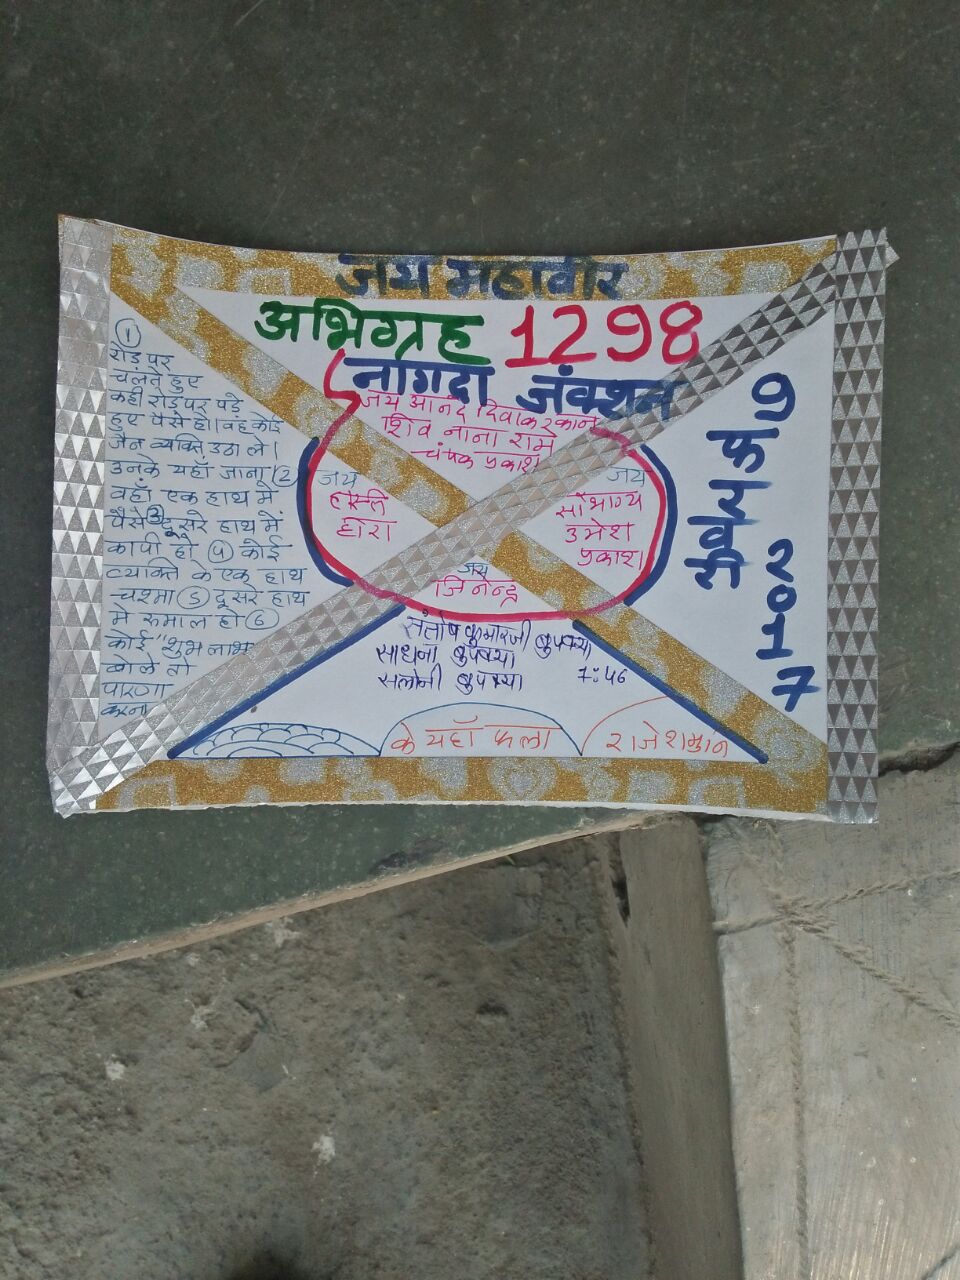 जय महावीर
अभिग्रह 1298
नागदा जंक्शन
जय आनंद दिवाकर कान
शिव नाना राम
चंपक प्रकाश
जय
हस्ती
हीरा
जय
सौभाग्य
उमेश
प्रकाश
जय
जिनेन्द्र
①
रोड़ पर
चलते हुए
कही रोड़ पर पड़े
हुए पैसे हो। वह कोई
जैन व्यक्ति उठा ले।
उनके यहाँ जाना ②
वहाँ एक हाथ में
पैसे ③ दूसरे हाथ में
कापी हो ④ कोई
व्यक्ति के एक हाथ
चश्मा ⑤ दूसरे हाथ
मे रुमाल हो ⑥
कोई "शुभ लाभ
बोले तो
पारणा
करना
संतोष कुमारजी
साधना
सलोनी
1:46
के यहाँ फला
9 फरवरी
2017